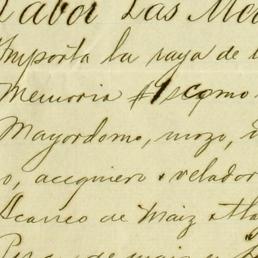 Labor Las Me
Importa la raya de
Memoria #1 como
Mayordomo, mozo,
o, acequiero o velador
Acarreo de Maiz